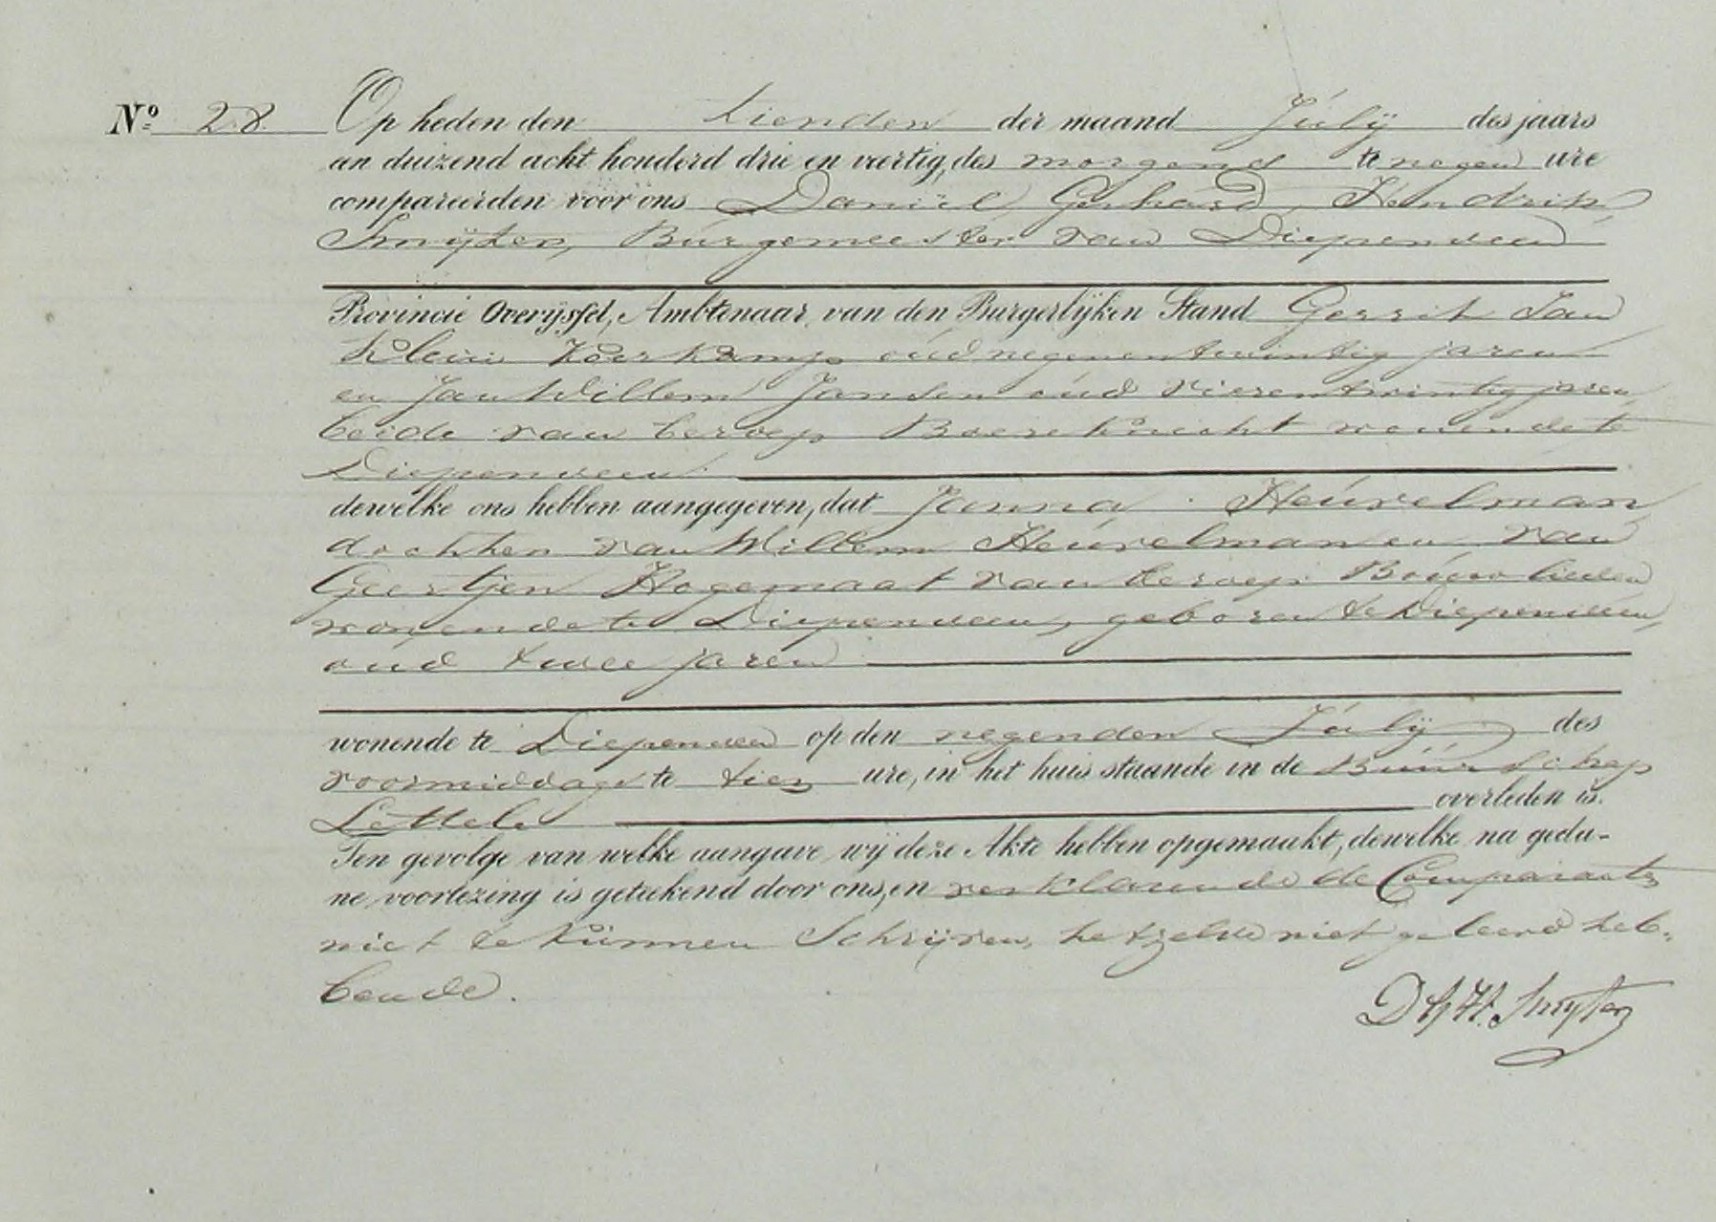 No. 28. Op heden den tienden der maand Julÿ des jaars
an duizend acht honderd drie en veertig, des morgens te negen ure
compareerden voor ons Daniël Gerhard Hendrik
Smijter, Burgemeester van Diepenveen
Provincie Overijssel, Ambtenaar van den Burgerlijken Stand Gerrit Jan
Klein Koerkamp oud negenentwintig jaren
en Jan Willem Jansen oud vierentwintig jaren
beide van beroep Boereknecht wonende te
Diepenveen
dewelke ons hebben aangegeven, dat Janna Heuvelman
dochter van Willem Heuvelman en van
Geertjen Hogemaat van beroep Bouwlieden
wonende te Diepenveen, geboren te Diepenveen,
oud twee jaren
wonende te Diepenveen op den negenden Julÿ des
voormiddags te tien ure, in het huis staande in de Buurschap
Lettele overleden is.
Ten gevolge van welke aangave wij deze Akte hebben opgemaakt, dewelke na geda-
ne voorlezing is geteekend door ons, en verklarende de Comparanten
niet te kunnen Schrijven, hetzelve niet geleerd heb-
bende.
DGH. Smijter